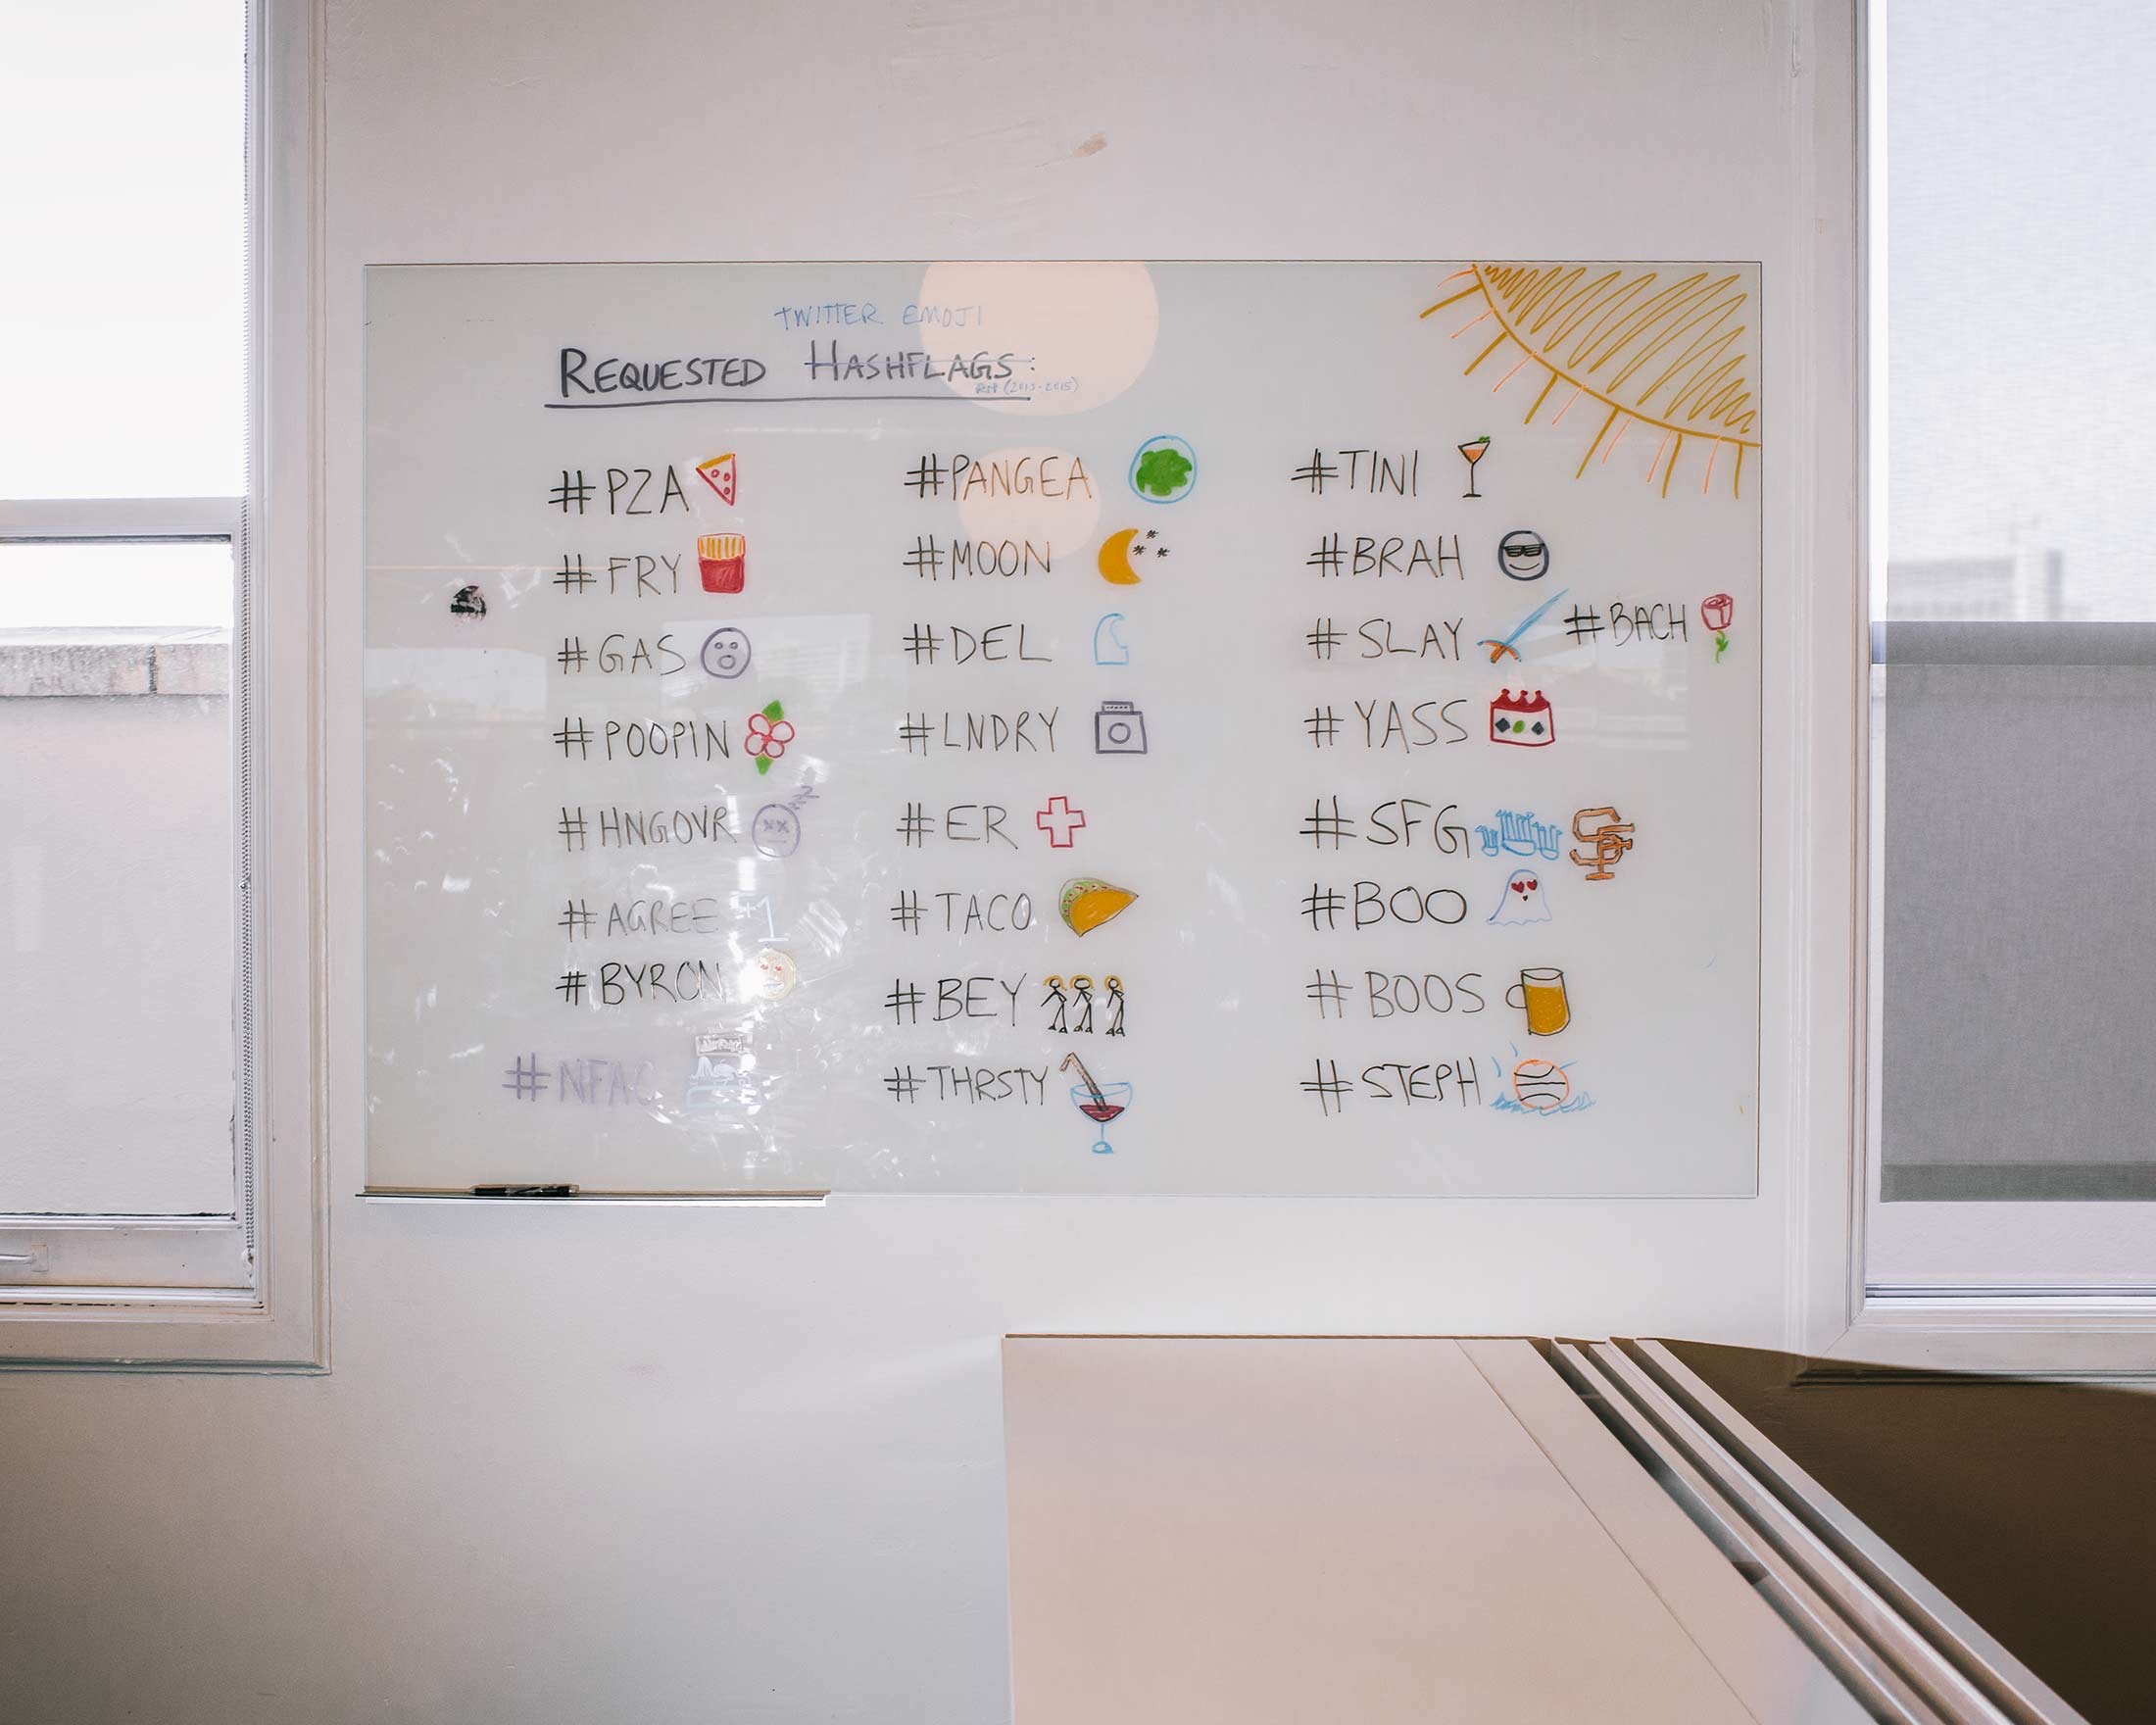 TWITTER EMOJI
REQUESTED HASHFLAGS:
RIP (2013-2015)
#PZA
#FRY
#GAS
#POOPIN
#HNGOVR
#AGREE +1
#BYRON
#PANGEA
#MOON
#DEL
#LNDRY
#ER
#TACO
#BEY
#THRSTY
#TINI
#BRAH
#SLAY
#BACH
#YASS
#SFG SF
#BOO
#BOOS
#STEPH